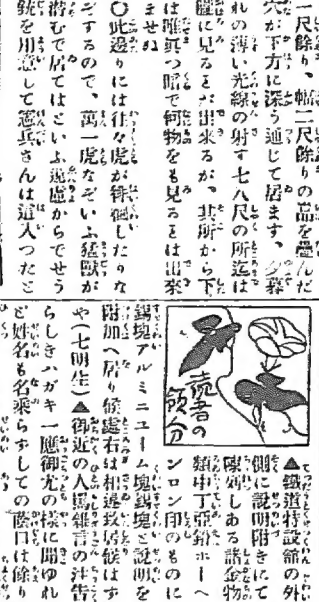 一尺餘り、幅二尺餘りの
穴が下方に深う通じて居ます、夕暮
れの薄い光線の射す七八尺の所迄は
朧に見るとが出來るが、其所から下
は眞暗で何物をも見るとは出來
ませぬ
〇此邊りには往々虎が徘徊したりな
ぞするので、萬一虎なぞいふ猛獸が
潜むで居てはといふ遠慮からでせう
銃を用意して憲兵さんは這入つたと
讀者の領分
▲鐵道特設館の外
側に説明附きにて
陳列しある諸金物
類中丁亞鉛ホーへ
ンロン印のものに
錫塊アルミニユーム塊錫塊と説明を
附加へ居り候處右は相違致居候はず
や(七明生)▲御近の人
らしきハガキ一應御尤の樣に聞ゆれ
ど姓名も名乘らずしての蔭口は餘り